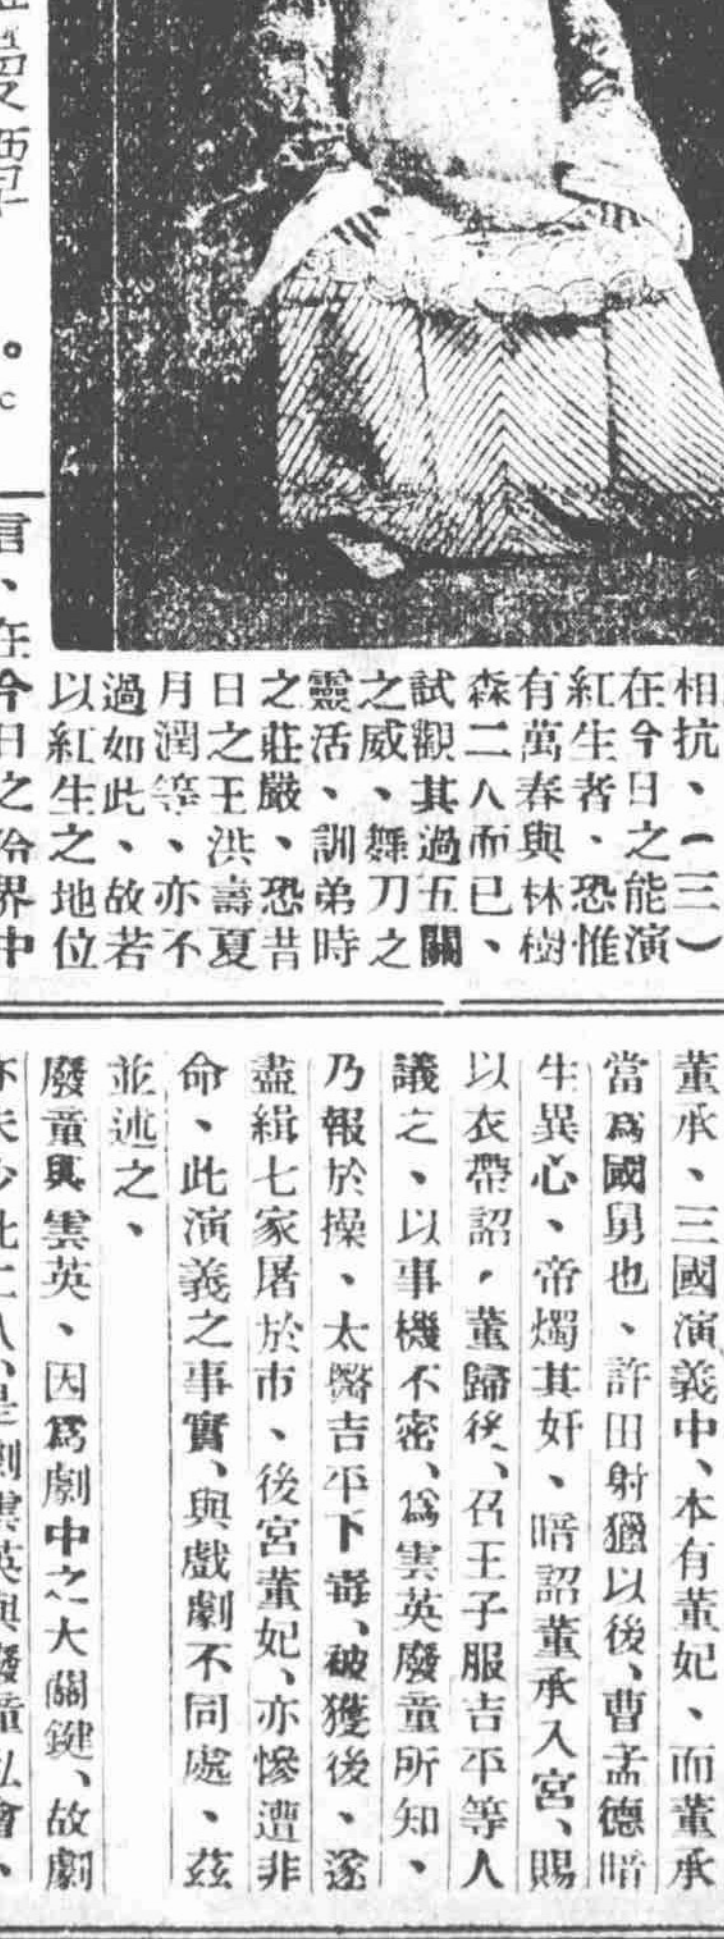 相抗、(三)
在今日之能演
紅生者、恐惟
有萬春與林樹
森二人而已、
試觀其過五關
之威、舞刀之
靈活、訓弟時
之莊嚴、恐昔
日之王洪壽夏
月潤等、亦不
過如此、故若
以紅生之地位
言、在今日之伶界中
董承、三國演義中、本有董妃、而董承
當爲國舅也、許田射獵以後、曹孟德暗
生異心、帝燭其奸、暗詔董承入宮、賜
以衣帶詔，董歸後、召王子服吉平等人
議之、以事機不密、爲雲英廢童所知、
乃報於操、太醫吉平下毒、被獲後、遂
盡緝七家屠於市、後宮董妃、亦慘遭非
命、此演義之事實、與戲劇不同處、茲
並述之、
廢童與雲英、因爲劇中之大關鍵、故劇